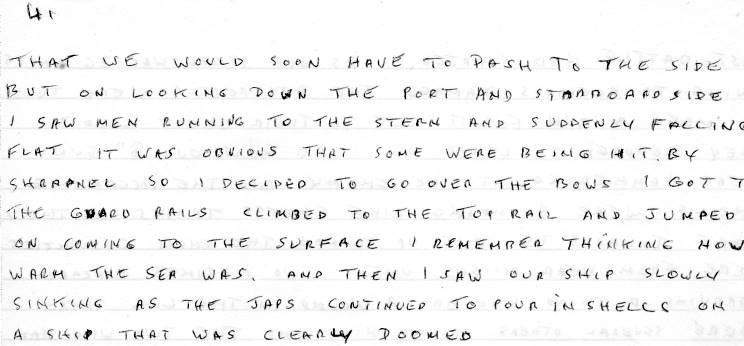 41
THAT WE WOULD SOON HAVE TO DASH TO THE SIDE
BUT ON LOOKING DOWN THE PORT AND STARBOARD SIDE
I SAW MEN RUNNING TO THE STERN AND SUDDENLY FALLING
FLAT IT WAS OBVIOUS THAT SOME WERE BEING HIT. BY
SHRAPNEL SO I DECIDED TO GO OVER THE BOWS I GOT T
THE GUARD RAILS CLIMBED TO THE TOP RAIL AND JUMPED
ON COMING TO THE SURFACE I REMEMBER THINKING HOW
WARM THE SEA WAS. AND THEN I SAW OUR SHIP SLOWLY
SINKING AS THE JAPS CONTINUED TO POUR IN SHELLS ON
A SHIP THAT WAS CLEARLY DOOMED